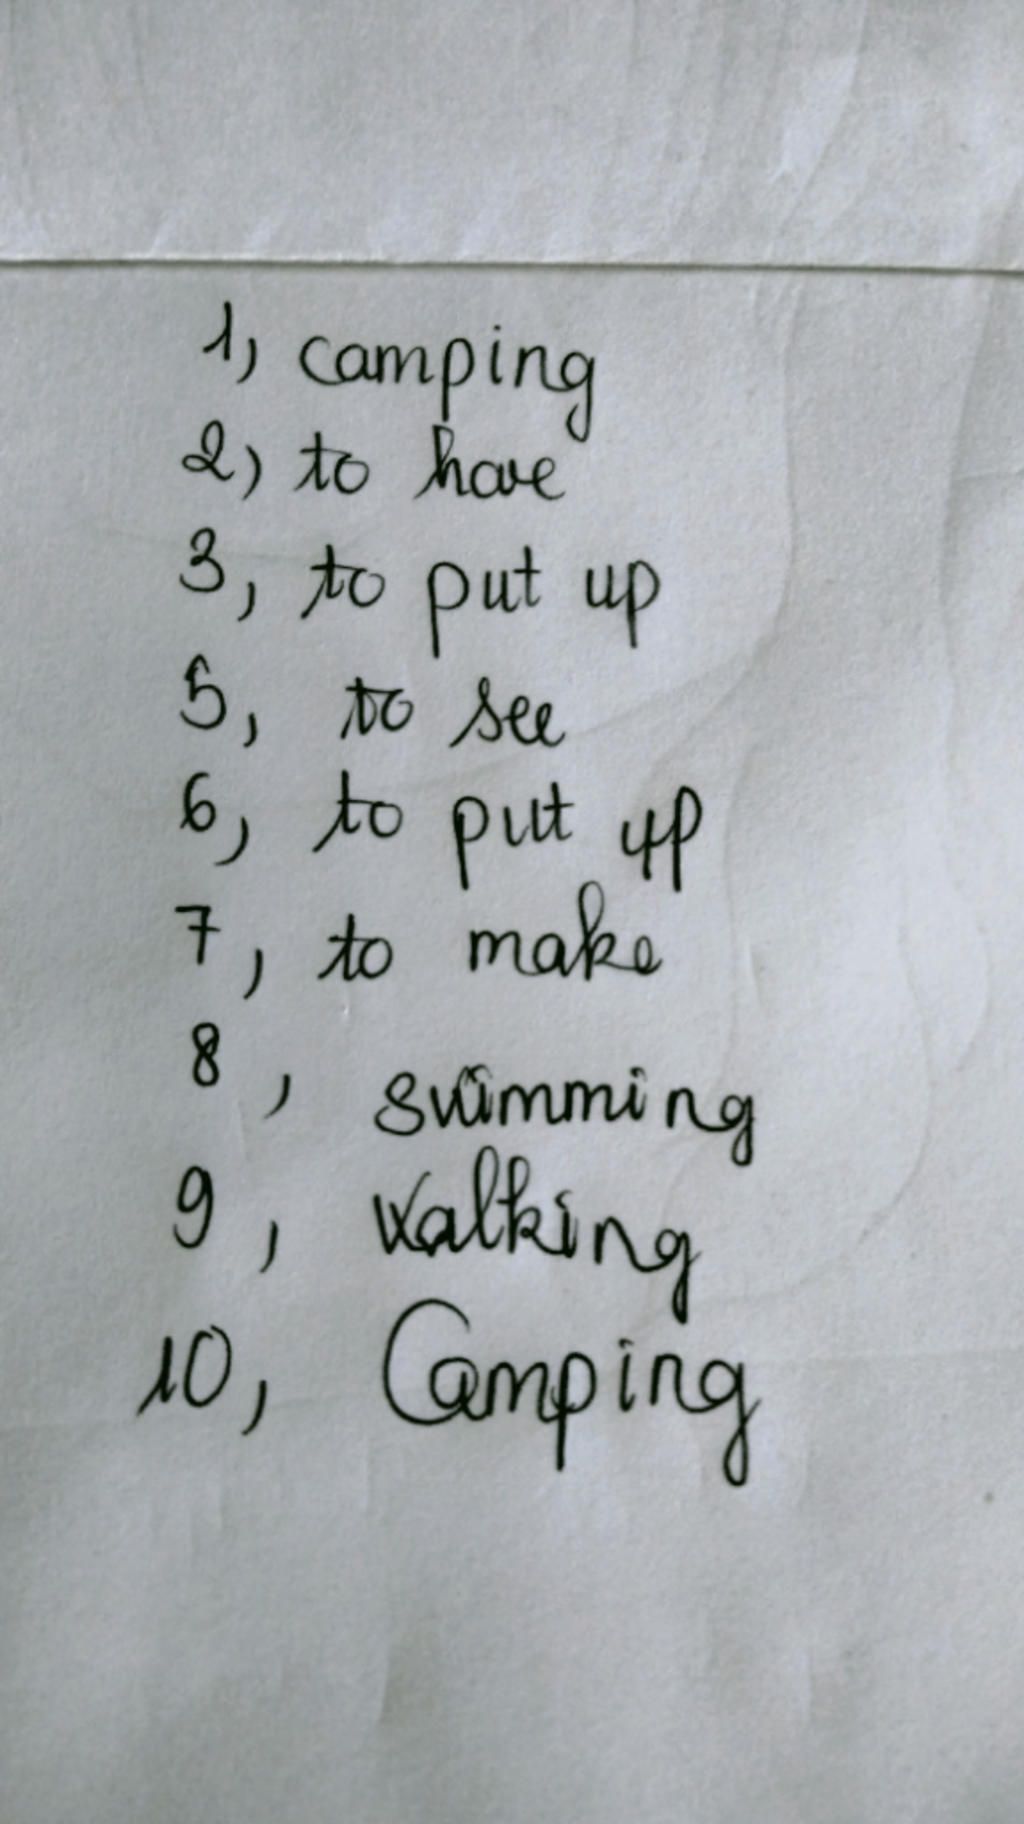 1, camping
2) to have
3, to put up
5, to see
6, to put up
7, to make
8, swimming
9, walking
10, Camping